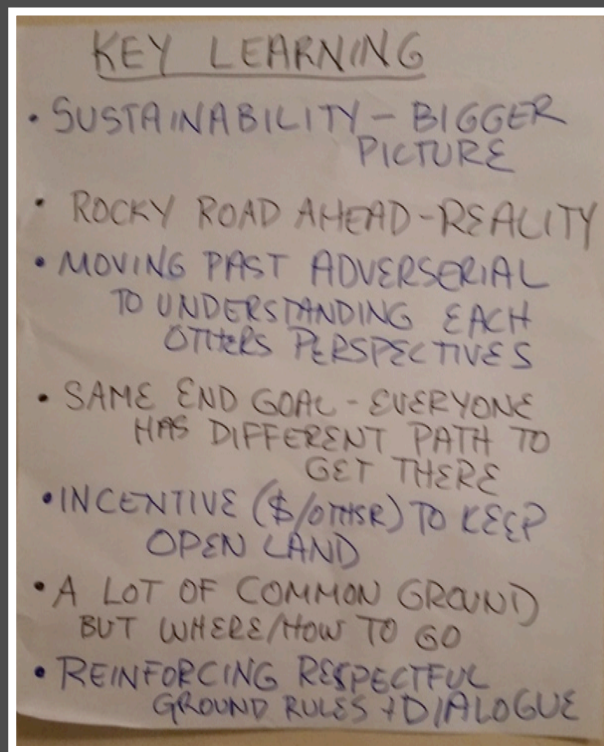 KEY LEARNING
• SUSTAINABILITY – BIGGER
PICTURE
• ROCKY ROAD AHEAD – REALITY
• MOVING PAST ADVERSERIAL
TO UNDERSTANDING EACH
OTHERS PERSPECTIVES
• SAME END GOAL – EVERYONE
HAS DIFFERENT PATH TO
GET THERE
• INCENTIVE ($/OTHER) TO KEEP
OPEN LAND
• A LOT OF COMMON GROUND
BUT WHERE/HOW TO GO
• REINFORCING RESPECTFUL
GROUND RULES + DIALOGUE